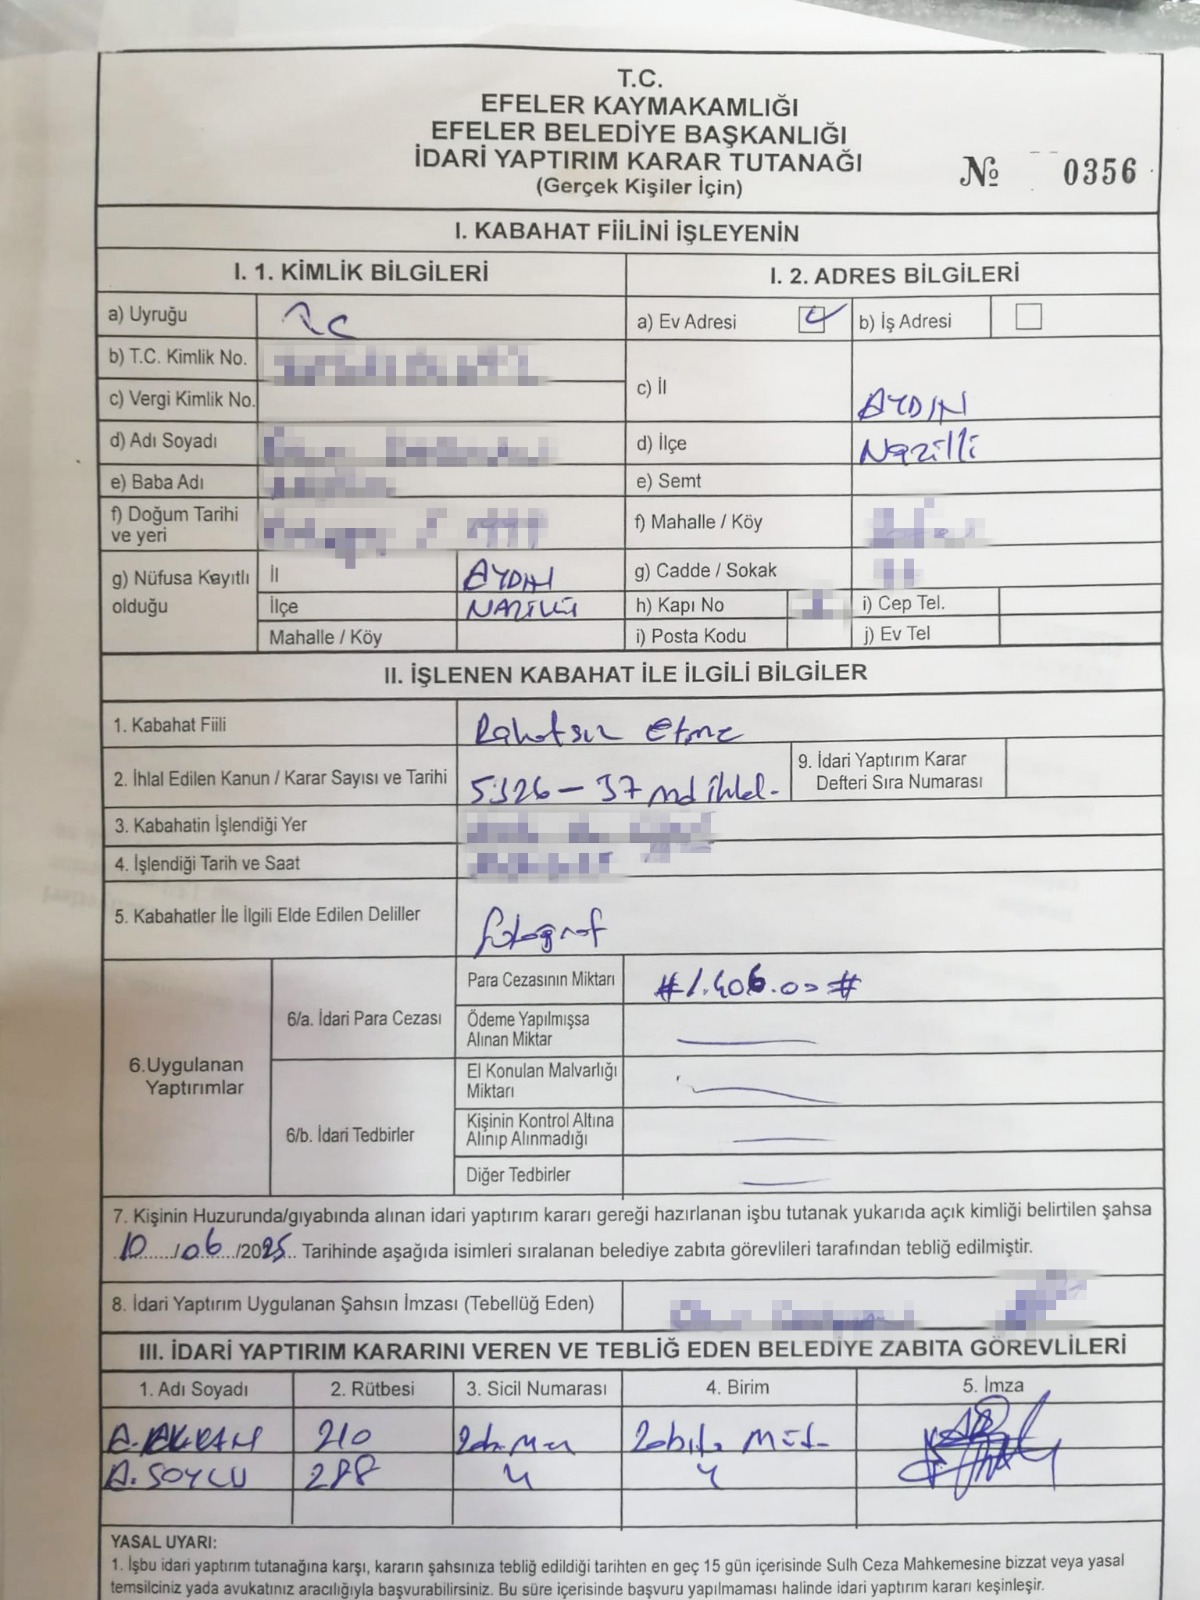 T.C.
EFELER KAYMAKAMLIĞI
EFELER BELEDİYE BAŞKANLIĞI
İDARİ YAPTIRIM KARAR TUTANAĞI
(Gerçek Kişiler İçin)
№ 0356
I. KABAHAT FİİLİNİ İŞLEYENİN
I. 1. KİMLİK BİLGİLERİ
I. 2. ADRES BİLGİLERİ
a) Uyruğu TC
a) Ev Adresi
b) İş Adresi
b) T.C. Kimlik No.
c) Vergi Kimlik No.
c) İl AYDIN
d) Adı Soyadı
d) İlçe Nazilli
e) Baba Adı
e) Semt
f) Doğum Tarihi
ve yeri
f) Mahalle / Köy
g) Nüfusa Kayıtlı
olduğu
İl AYDIN
g) Cadde / Sokak
İlçe NAZİLLİ
h) Kapı No
i) Cep Tel.
Mahalle / Köy
i) Posta Kodu
j) Ev Tel
II. İŞLENEN KABAHAT İLE İLGİLİ BİLGİLER
1. Kabahat Fiili Rahatsız Etme
2. İhlal Edilen Kanun / Karar Sayısı ve Tarihi 5326 – 37 md ihlal.
9. İdari Yaptırım Karar
Defteri Sıra Numarası
3. Kabahatin İşlendiği Yer
4. İşlendiği Tarih ve Saat
5. Kabahatler İle İlgili Elde Edilen Deliller fotograf
6.Uygulanan
Yaptırımlar
6/a. İdari Para Cezası
Para Cezasının Miktarı #1.406.00#
Ödeme Yapılmışsa
Alınan Miktar
6/b. İdari Tedbirler
El Konulan Malvarlığı
Miktarı
Kişinin Kontrol Altına
Alınıp Alınmadığı
Diğer Tedbirler
7. Kişinin Huzurunda/gıyabında alınan idari yaptırım kararı gereği hazırlanan işbu tutanak yukarıda açık kimliği belirtilen şahsa
10/06/2025 Tarihinde aşağıda isimleri sıralanan belediye zabıta görevlileri tarafından tebliğ edilmiştir.
8. İdari Yaptırım Uygulanan Şahsın İmzası (Tebellüğ Eden)
III. İDARİ YAPTIRIM KARARINI VEREN VE TEBLİĞ EDEN BELEDİYE ZABITA GÖREVLİLERİ
1. Adı Soyadı
2. Rütbesi
3. Sicil Numarası
4. Birim
5. İmza
A. 210 Zabıta Müd.
A. SOYLU 288 " "
YASAL UYARI:
1. İşbu idari yaptırım tutanağına karşı, kararın şahsınıza tebliğ edildiği tarihten en geç 15 gün içerisinde Sulh Ceza Mahkemesine bizzat veya yasal
temsilciniz yada avukatınız aracılığıyla başvurabilirsiniz. Bu süre içerisinde başvuru yapılmaması halinde idari yaptırım kararı keşinleşir.